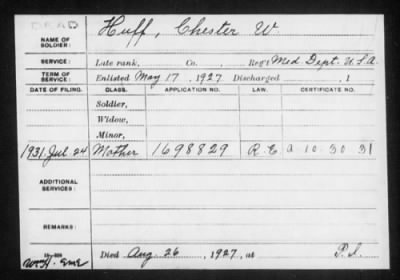 DEAD
NAME OF SOLDIER: Huff, Chester W.
SERVICE: Late rank, Co. Reg't Med. Dept. U.S.A.
TERM OF SERVICE: Enlisted May 17, 1927 Discharged , 1
DATE OF FILING. CLASS. APPLICATION NO. LAW. CERTIFICATE NO.
Soldier,
Widow,
Minor,
1931. Jul 24 Mother 1698829 R.E. a-10-30-31
ADDITIONAL SERVICES:
REMARKS:
Died Aug. 26, 1927, at P.I.